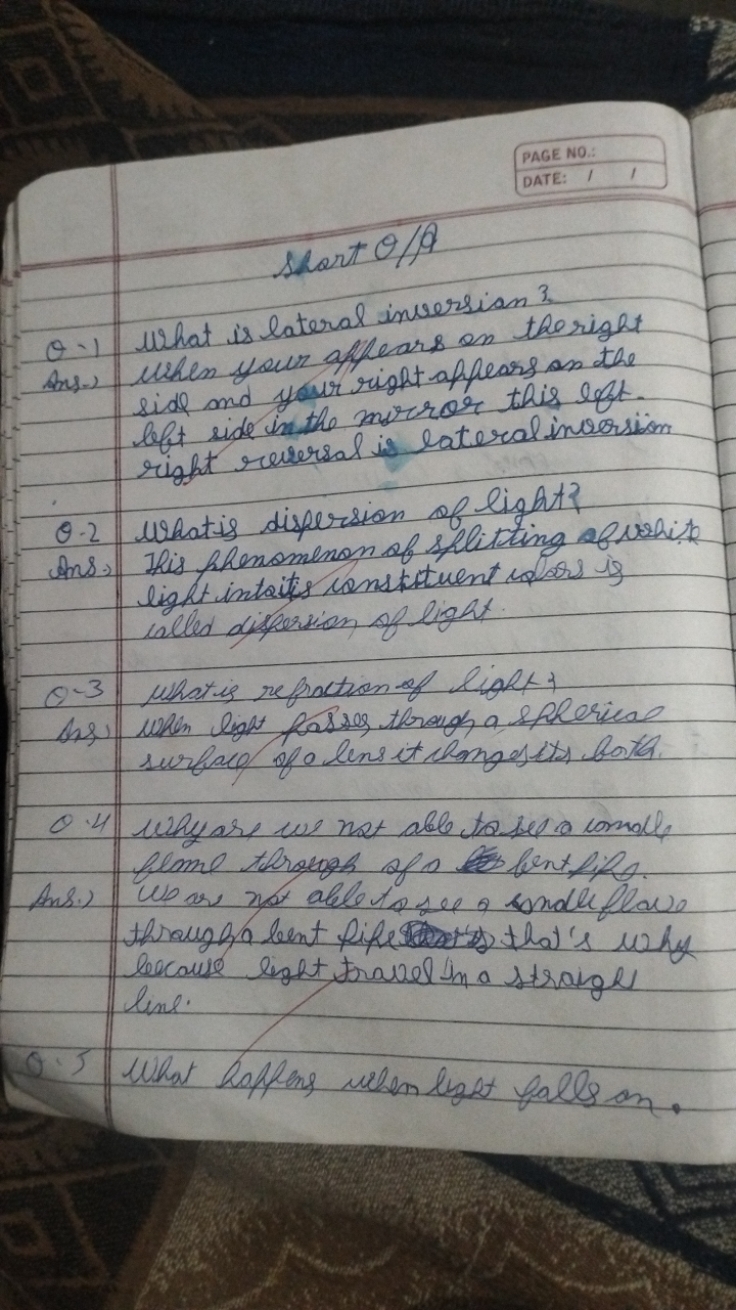 PAGE NO.:
DATE: / /
Short Q/A
Q-1 What is lateral inversion?
Ans.) When your appears on the right
side and your right appears on the
left side in the mirror this left-
right reversal is lateral inversion
Q-2 What is dispersion of light?
Ans.) This phenomenon of splitting of white
light into its constituent colors is
called dispersion of light.
Q-3 What is refraction of light?
Ans) When light passes through a spherical
surface of a lens it changes its
Q.4 Why are we not able to see a candle
flame through of a bent pipe.
Ans.) We are not able to see a candle flame
through a bent pipe that's why
because light travel in a straight
line.
Q.5 What happens when light falls on.